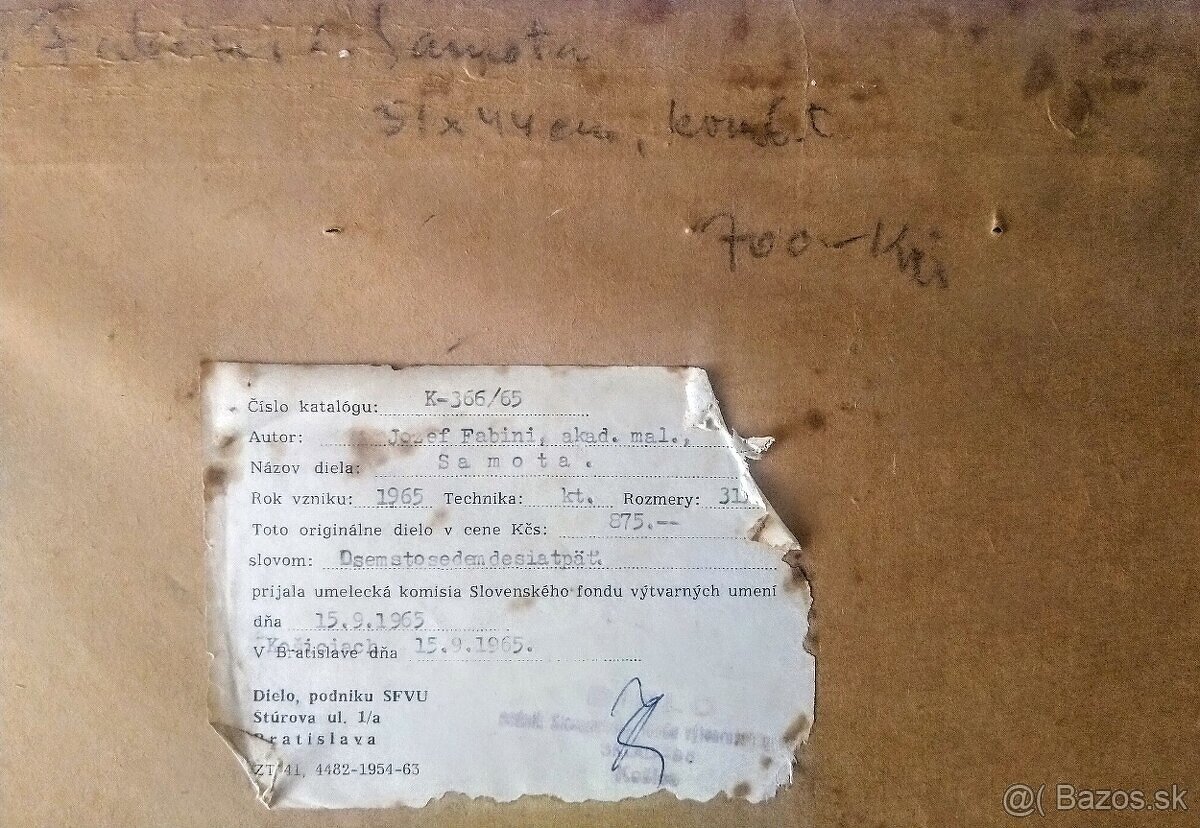 Samota
31x44 cm, komb. t.
700- Kčs
Číslo katalógu: K-366/65
Autor: Jozef Fabini, akad. mal.,
Názov diela: Samota.
Rok vzniku: 1965 Technika: kt. Rozmery: 31
Toto originálne dielo v cene Kčs: 875.--
slovom: Osemstosedemdesiatpäť.
prijala umelecká komisia Slovenského fondu výtvarných umení
dňa 15.9.1965
Košiciach
V Bratislave dňa 15.9.1965.
Dielo, podniku SFVU
Štúrova ul. 1/a
Bratislava
ZT 41, 4482-1954-63
@( Bazos.sk